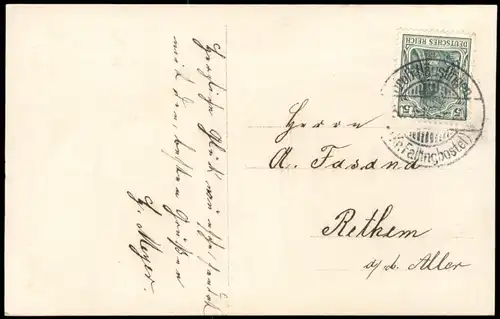 Herzliche Glückwünsche sendet
mit den besten Grüßen
H. Meyer.
DEUTSCHES REICH
5
5
(Kr. Fallingbostel)
Herrn
A. Fasand
Rethem
a/d. Aller